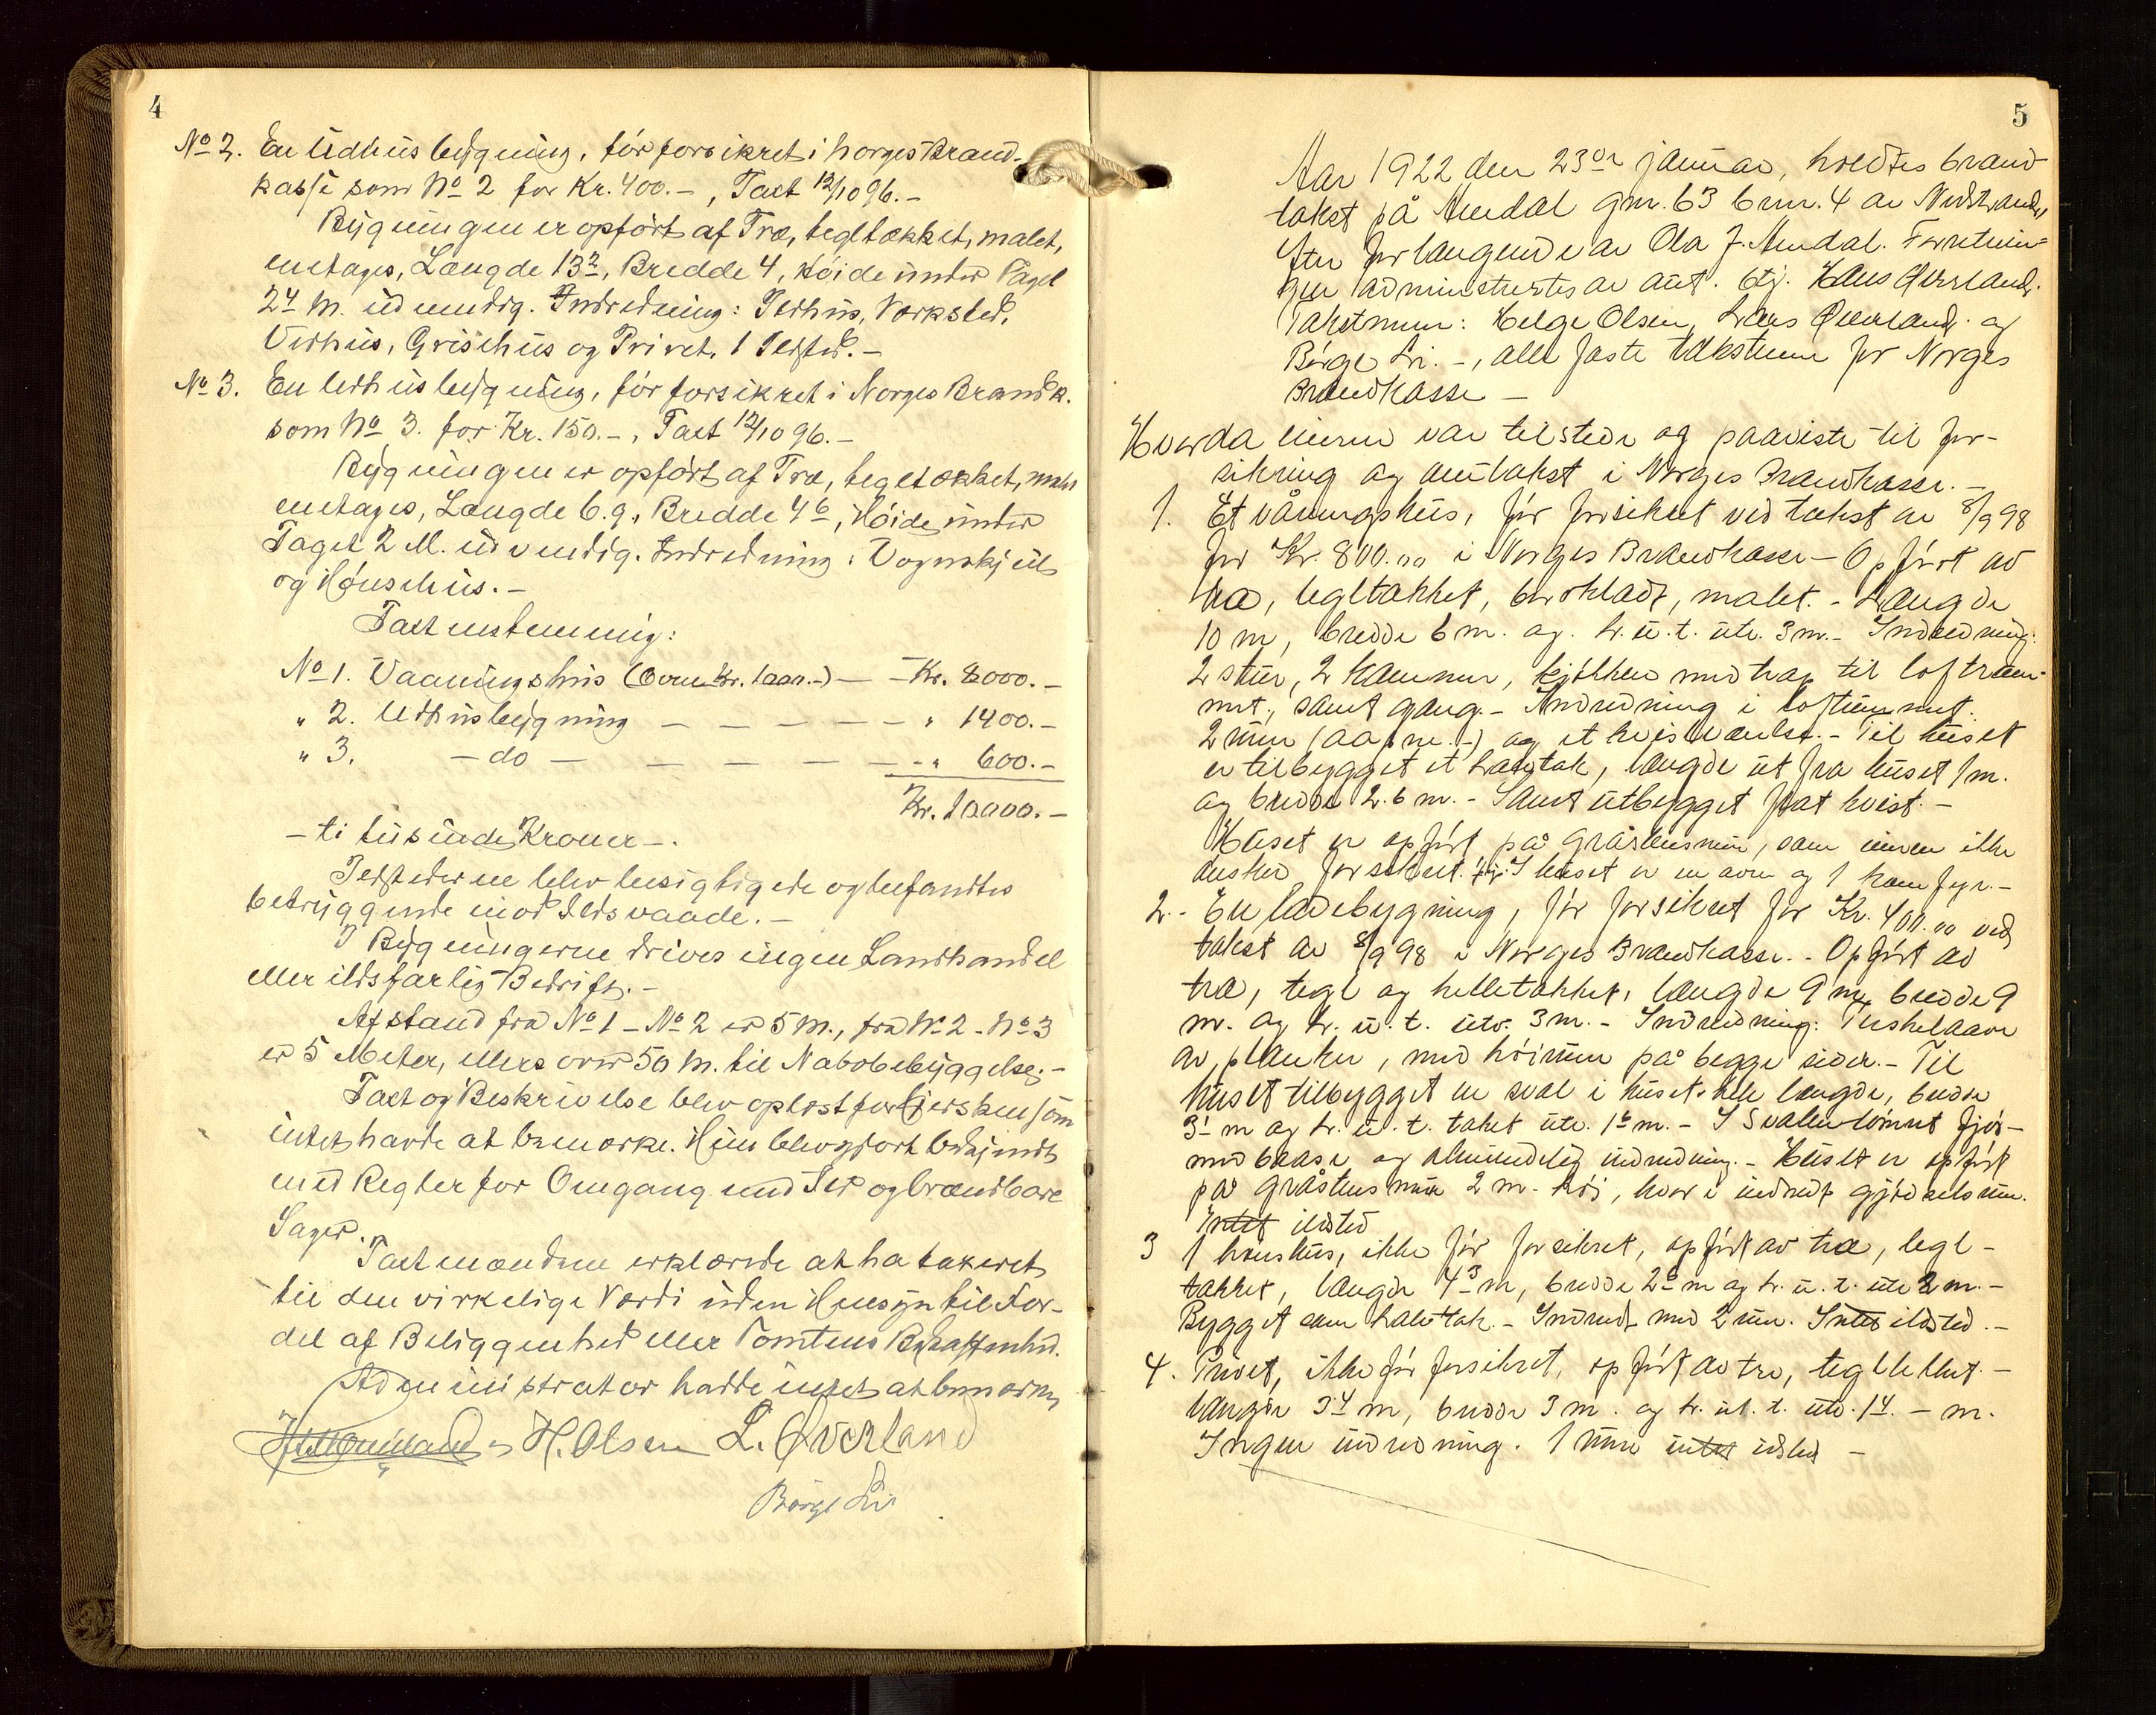 4
No 2. En Udhusbygning, før forsikret i Norges Brand-
kasse som No 2 for Kr. 400.-, Taxt 12/10 96.-
Bygningen er opført af Træ, tegltækket, malet,
enetages, Længde 13 2, Bredde 4, Høide under Taget
2 4 M. udvendig. Indredning: Ildhus, Værksted,
Vedhus, Grisehus og Privet, 1 Ildsted.-
No 3. En Udhusbygning, før forsikret i Norges Brandk.
som No 3. for Kr. 150.-, Taxt 12/10 96.-
Bygningen er opført af Træ, tegltækket, malet
enetages, Længde 6.9, Bredde 4 6, Høide under
Taget 2 M. udvendig. Indredning: Vognskjul
og Hønsehus.-
Taxtenstemning:
No 1. Vaaningshus (Ovne Kr. 1000.-) — Kr. 8000.-
" 2. Udhusbygning — — — — — " 1400.-
" 3. — do — — — — — - " 600.-
Kr. 10000.-
- ti tusinde Kroner -.
Ildstederne blev besigtigede og befandtes
betryggende imod Ildsvaade.-
I Bygningerne drives ingen Landhandel
eller ildsfarlig Bedrift.-
Afstand fra No 1 - No 2 er 5 M., fra No 2 - No 3
er 5 Meter, ellers over 50 M. til Nabobebyggelse.-
Taxt og Beskrivelse blev oplæst for Eiersken som
intet havde at bemærke. Hun blev gjort bekjendt
med Regler for Omgang med Ild og brændbare
Sager.
Taxtmændene erklærede at ha taxeret
til den virkelige Værdi uden Hensyn til For-
del af Beliggenhed eller Tomtens Beskaffenhed.
Administrator hadde intet at bemærke
H. Olsen L. Øverland
Børge Li
5
Aar 1922 den 23de januar, holdtes brand-
takst på Amdal gnr. 63 bnr. 4 av Nedstrand,
efter forlangende av Ola J. Amdal. Forretnin-
gen administrertes av aut. btj. Hans Øverland.
Takstmenn: Helge Olsen, Lars Øverland og
Børge Li.-, alle faste takstmenn for Norges
Brandkasse -
Hvorda eieren var tilstede og paaviste til for-
sikring og omtakst i Norges Brandkasse.-
1. Et våningshus, før forsikret ved takst av 8/9 98
for Kr. 800.00 i Norges Brandkasse - Opført av
træ, tegltækket, bordklædt, malet. - Længde
10 m, bredde 6 m. og h. u. t. utv. 3 m. - Indredning:
2 stuer, 2 kammer, kjøkken med trap til loftrum-
met, samt gang. - Indredning i loftrummet
2 rum (aapne.-) og et kvistværelse. - Til huset
er tilbygget et halvtak, længde ut fra huset 1 m.
og bredde 2.6 m. - Samt utbygget flat kvist. -
Huset er opført på gråstensmur, som eieren ikke
ønsker forsikret. I huset er en ovn og 1 komfyr. -
2. - En ladebygning, før forsikret for Kr. 400.00 ved
takst av 8/9 98 i Norges Brandkasse. - Opført av
træ, tegl og helletækket, længde 9 m, bredde 9
m. og h. u. t. utv. 3 m. - Indredning: Treskelaave
av planker, med høirum på begge sider. - Til
huset tilbygget en sval i husets hele længde, bredde
3 - m og h. u. t. taket utv. 1 6 m. - I Svalen tømret fjøs -
med baase og almindelig indredning. - Huset er opført
på gråstens mur 2 m. høi, hvor i indredt gjødselsrum.
Intet ildsted
3 1 hønshus, ikke før forsikret, opført av træ, tegl-
tækket, længde 4 3 m, bredde 2 5 m og h. u. t. utv 2 m. -
Bygget som halvtak. - Indredt med 2 rum. Intet ildsted. -
4. Privet, ikke før forsikret, opført av tre, tegltekket. -
længde 3 4 m, bredde 3 m. og h. ut. t. utv. 1 4. - m.
Ingen indredning. 1 rum intet ildsted -